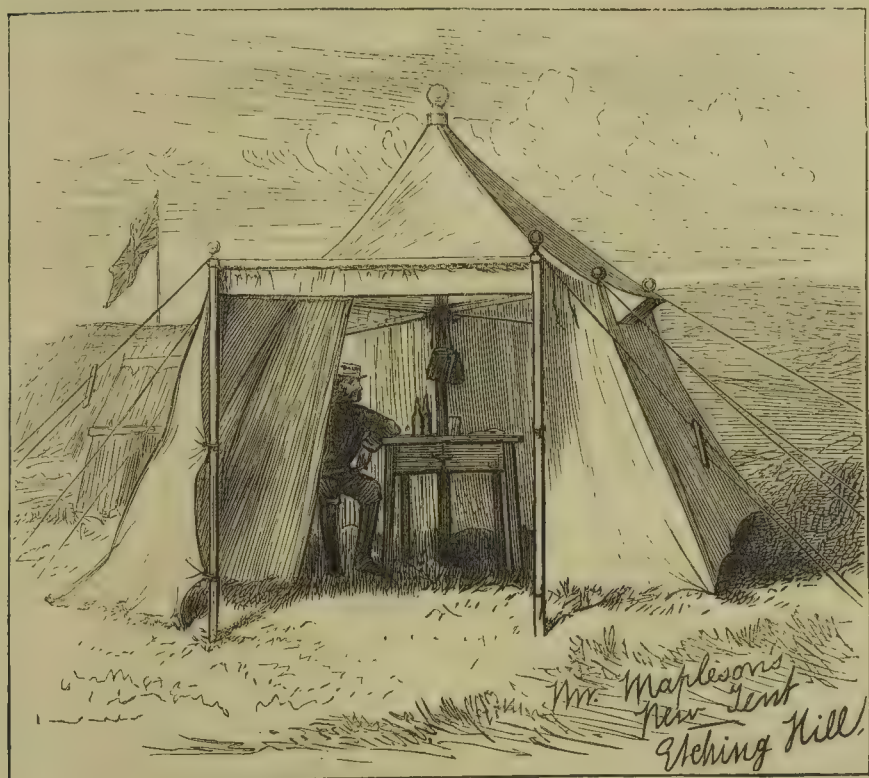 Mr. Maplesons
New Tent
Etching Hill.